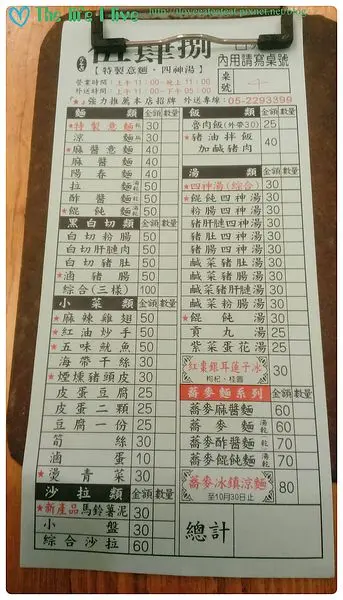 The life I live
伍肆捌
【特製意麵．四神湯】
內用請寫桌號
桌號
營業時間：上午11:00～晚上11:00
外送時間：上午11:00～
"★"強力推薦本店招牌 外送專線：05-2293399
麵類 金額 數量
★特製意麵 30
涼麵 30
★麻醬意麵 40
麻醬麵 40
陽春麵 40
拉麵 50
酢醬麵 50
★餛飩麵 50
黑白切類 金額 數量
白切粉腸 50
白切肝腱肉 50
白切豬肚 50
★滷豬腸 50
綜合(三樣) 100
小菜類 金額 數量
★麻辣雞翅 50
★紅油炒手 50
★五味魷魚 50
海帶干絲 30
★煙燻豬頭皮 30
皮蛋豆腐 25
皮蛋二顆 25
豆腐一份 25
筍絲 30
滷蛋 10
★燙青菜 30
沙拉類 金額 數量
★新產品馬鈴薯泥 30
小盤 30
綜合沙拉 60
飯類 金額 數量
魯肉飯(外帶30) 25
★豬油拌飯 40
加鹹豬肉
湯類 金額 數量
★四神湯(綜合) 30
★餛飩四神湯 30
粉腸四神湯 30
豬肝腱四神湯 30
豬肚四神湯 30
豬腸四神湯 30
鹹菜豬肚湯 30
鹹菜豬腸湯 30
鹹菜豬肝腱湯 30
鹹菜粉腸湯 30
★餛飩湯 30
貢丸湯 30
紫菜蛋花湯 30
紅棗銀耳蓮子冰 30
枸杞、桂圓
蕎麥麵系列 金額 數量
蕎麥麻醬麵 60
蕎麥麵 60
蕎麥酢醬麵 70
蕎麥餛飩麵 70
蕎麥冰鎮涼麵 80
至10月30日止
總計